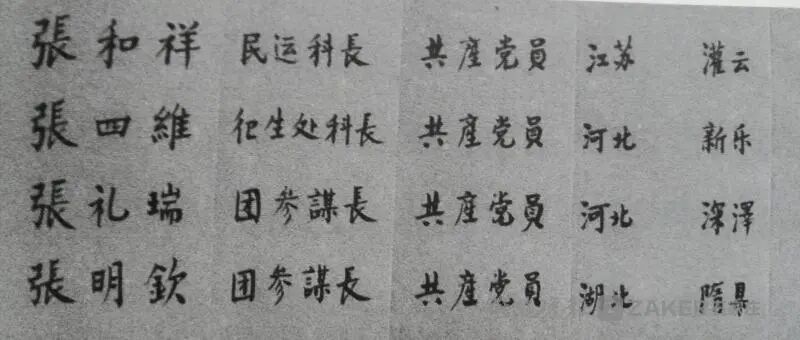 張和祥 民运科長 共產党員 江苏 灌云
張四維 衛生处科長 共產党員 河北 新乐
張礼瑞 团参謀長 共產党員 河北 深澤
張明欽 团参謀長 共產党員 湖北 隨县
ZAKER